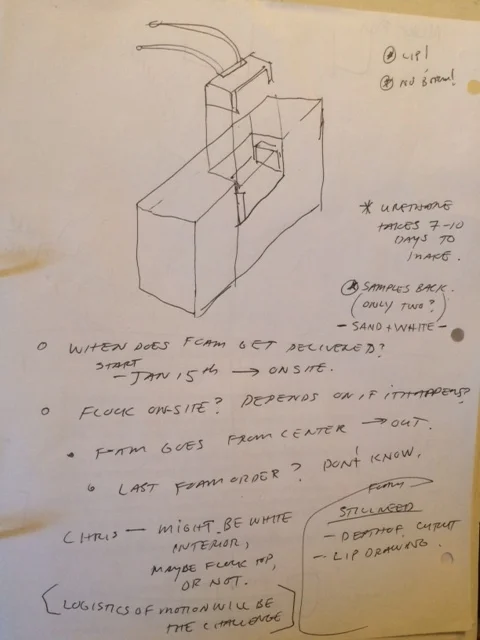 * LIP!
* NO BOTTOM!
* URETHANE
TAKES 7-10
DAYS TO
MAKE.
* SAMPLES BACK.
(ONLY TWO?)
- SAND + WHITE -
○ WHEN DOES FOAM GET DELIVERED?
START
- JAN 15th → ONSITE.
○ FLOCK ON-SITE? DEPENDS ON IF IT HAPPENS?
• FOAM GOES FROM CENTER → OUT.
○ LAST FOAM ORDER? DON'T KNOW.
CHRIS - MIGHT BE WHITE
INTERIOR,
MAYBE FLOCK TOP,
OR NOT.
[LOGISTICS OF MOTION WILL BE
THE CHALLENGE]
FOAM
STILL NEED
- DEPTH OF
- LIP DRAWING.